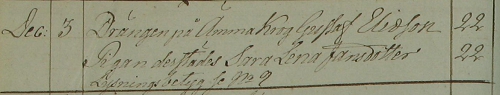 Dec: 3 Drängen på Amma Krog Gustaf Eliæson 22
Pigan desstädes Sara Lena Jansdotter 22
Lysningsbetyg se No 9